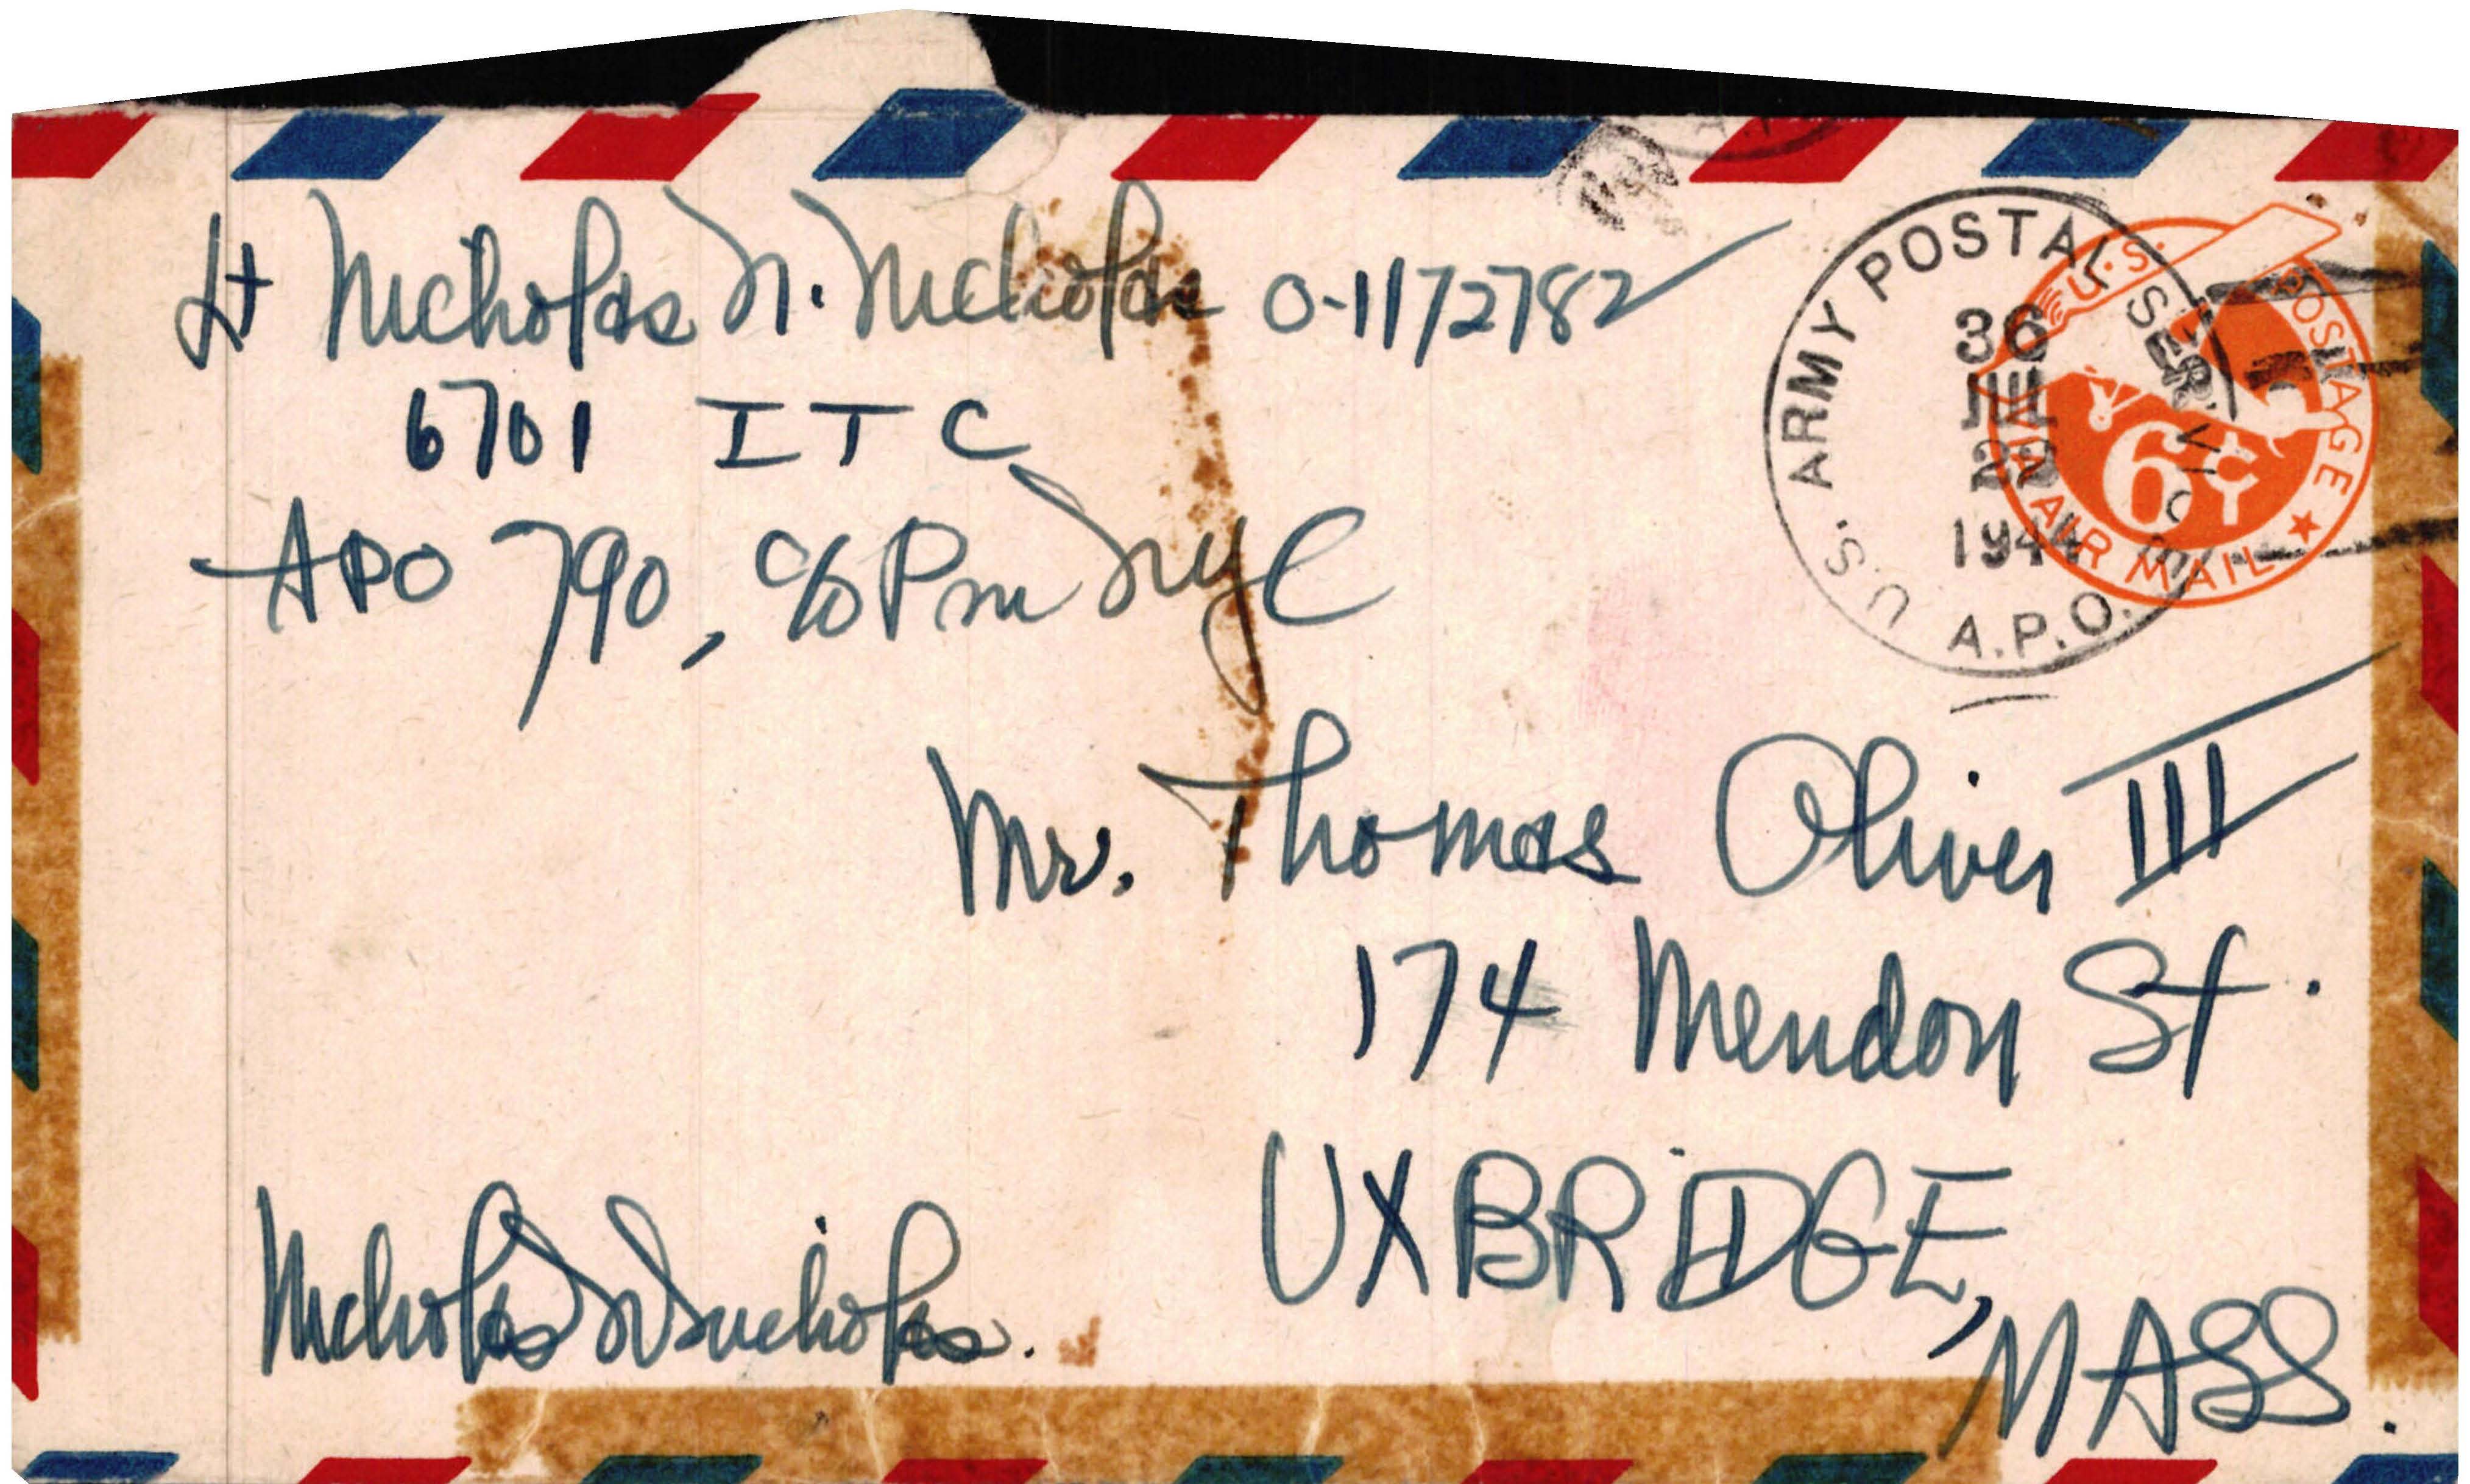 Lt Nicholas N. Nicholas O-1172782
6701 ITC
APO 790, c/o Pm NyC
U.S. ARMY POSTAL SERVICE
A.P.O.
JUL
22
1944
U.S. POSTAGE
6¢
VIA AIR MAIL
Mr. Thomas Oliver III
174 Mendon St.
UXBRIDGE,
MASS.
Nicholas N Nicholas.